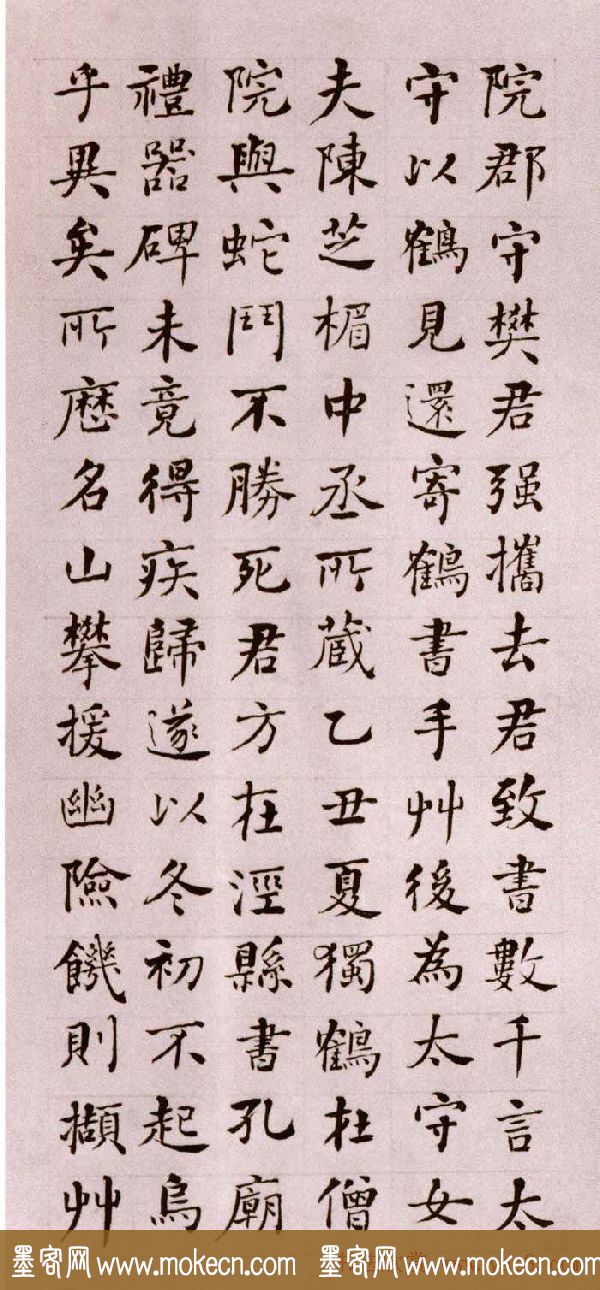 院郡守樊君强攜去君致書數千言太
守以鶴見還寄鶴書手艸後為太守女
夫陳芝楣中丞所蔵乙丑夏獨鶴在僧
院與蛇鬥不勝死君方在涇縣書孔廟
禮器碑未竟得疾歸遂以冬初不起烏
乎異矣所歷名山攀援幽險饑則擷艸
墨客网www.mokecn.com 墨客网www.mokecn.com